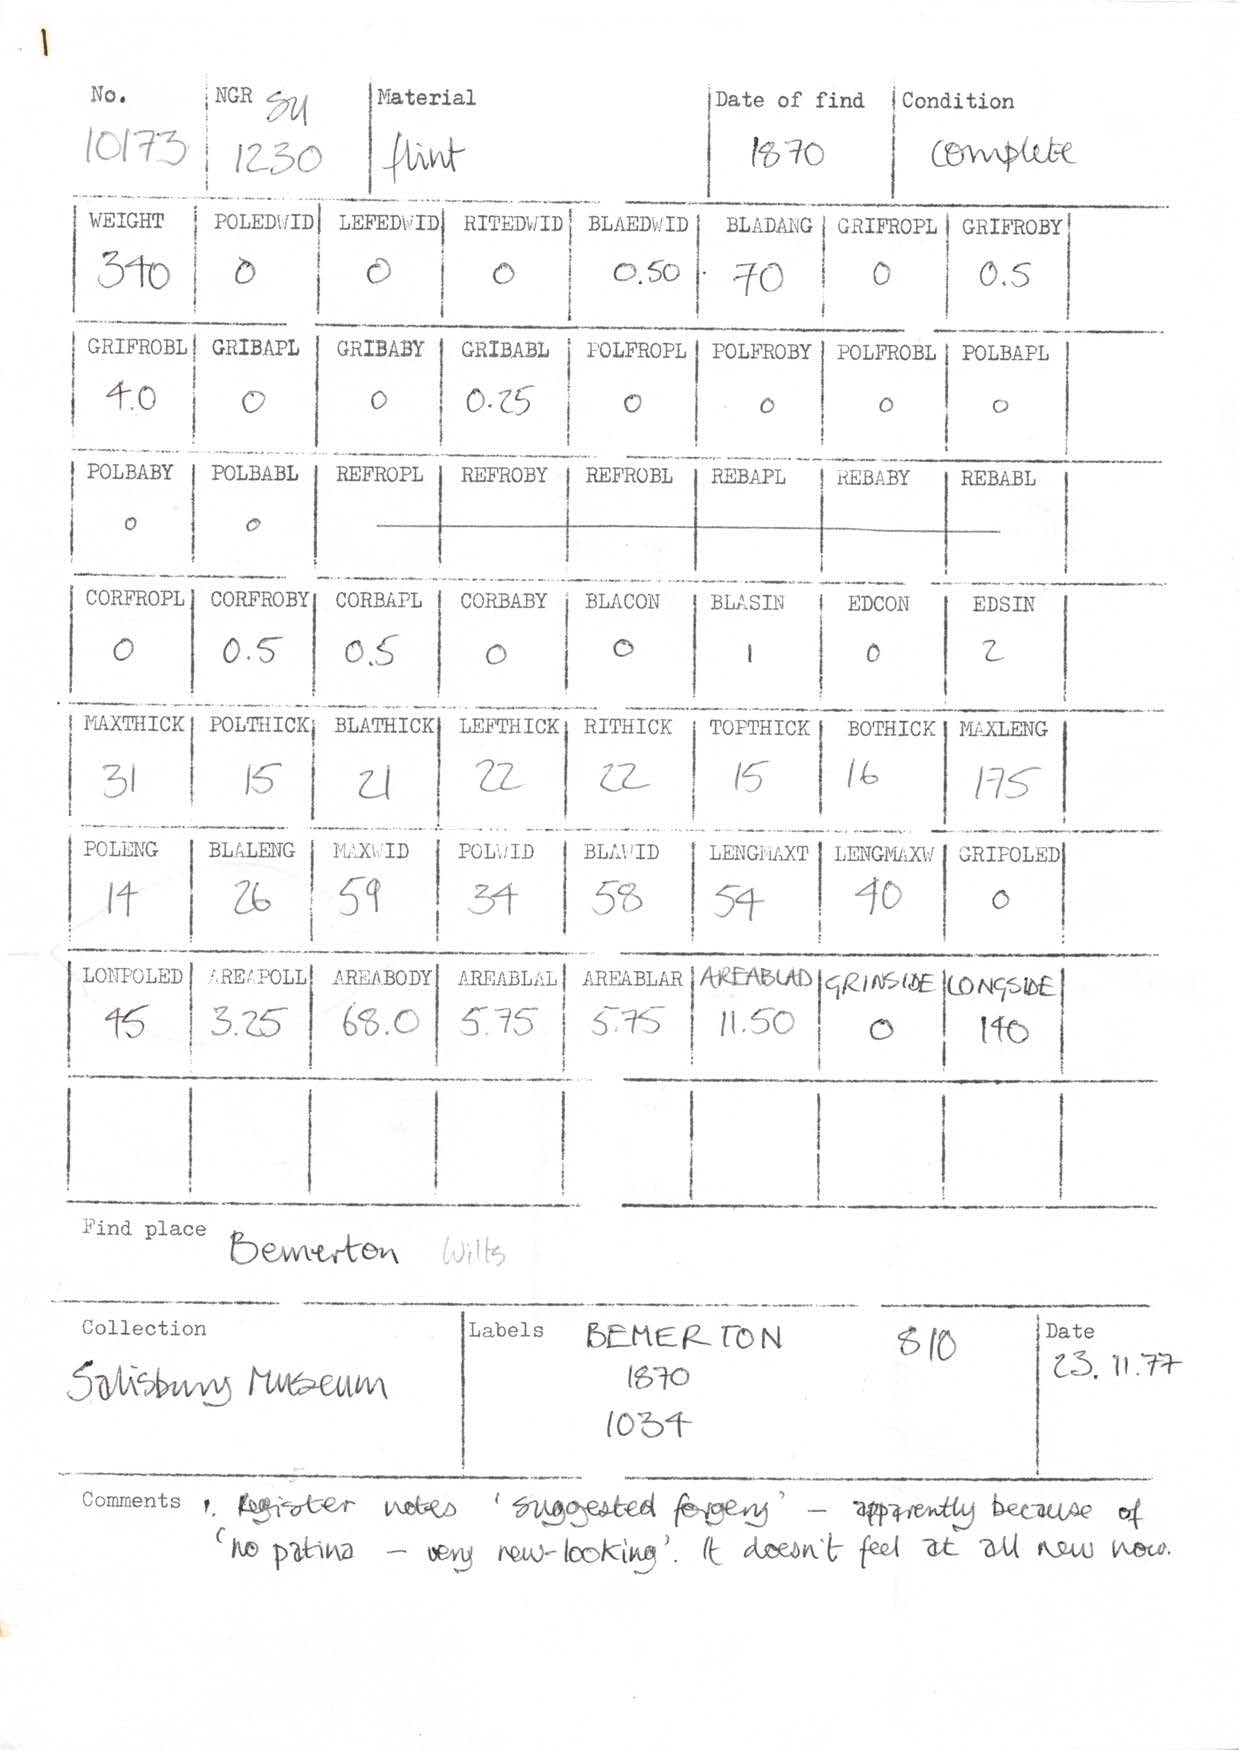 1
No. NGR SU Material Date of find Condition
10173 1230 flint 1870 complete
WEIGHT POLEDWID LEFEDWID RITEDWID BLAEDWID BLADANG GRIFROPL GRIFROBY
340 0 0 0 0.50 70 0 0.5
GRIFROBL GRIBAPL GRIBABY GRIBABL POLFROPL POLFROBY POLFROBL POLBAPL
4.0 0 0 0.25 0 0 0 0
POLBABY POLBABL REFROPL REFROBY REFROBL REBAPL REBABY REBABL
0 0
CORFROPL CORFROBY CORBAPL CORBABY BLACON BLASIN EDCON EDSIN
0 0.5 0.5 0 0 1 0 2
MAXTHICK POLTHICK BLATHICK LEFTHICK RITHICK TOPTHICK BOTHICK MAXLENG
31 15 21 22 22 15 16 175
POLENG BLALENG MAXWID POLWID BLAWID LENGMAXT LENGMAXW GRIPOLED
14 26 59 34 58 54 40 0
LONPOLED AREAPOLL AREABODY AREABLAL AREABLAR AREABLAD GRINSIDE LONGSIDE
45 3.25 68.0 5.75 5.75 11.50 0 140
Find place Bemerton Wilts
Collection Labels BEMERTON 810 Date
Salisbury Museum 1870 23.11.77
1034
Comments 1. Register notes 'suggested forgery' – apparently because of
'no patina – very new-looking'. It doesn't feel at all new now.